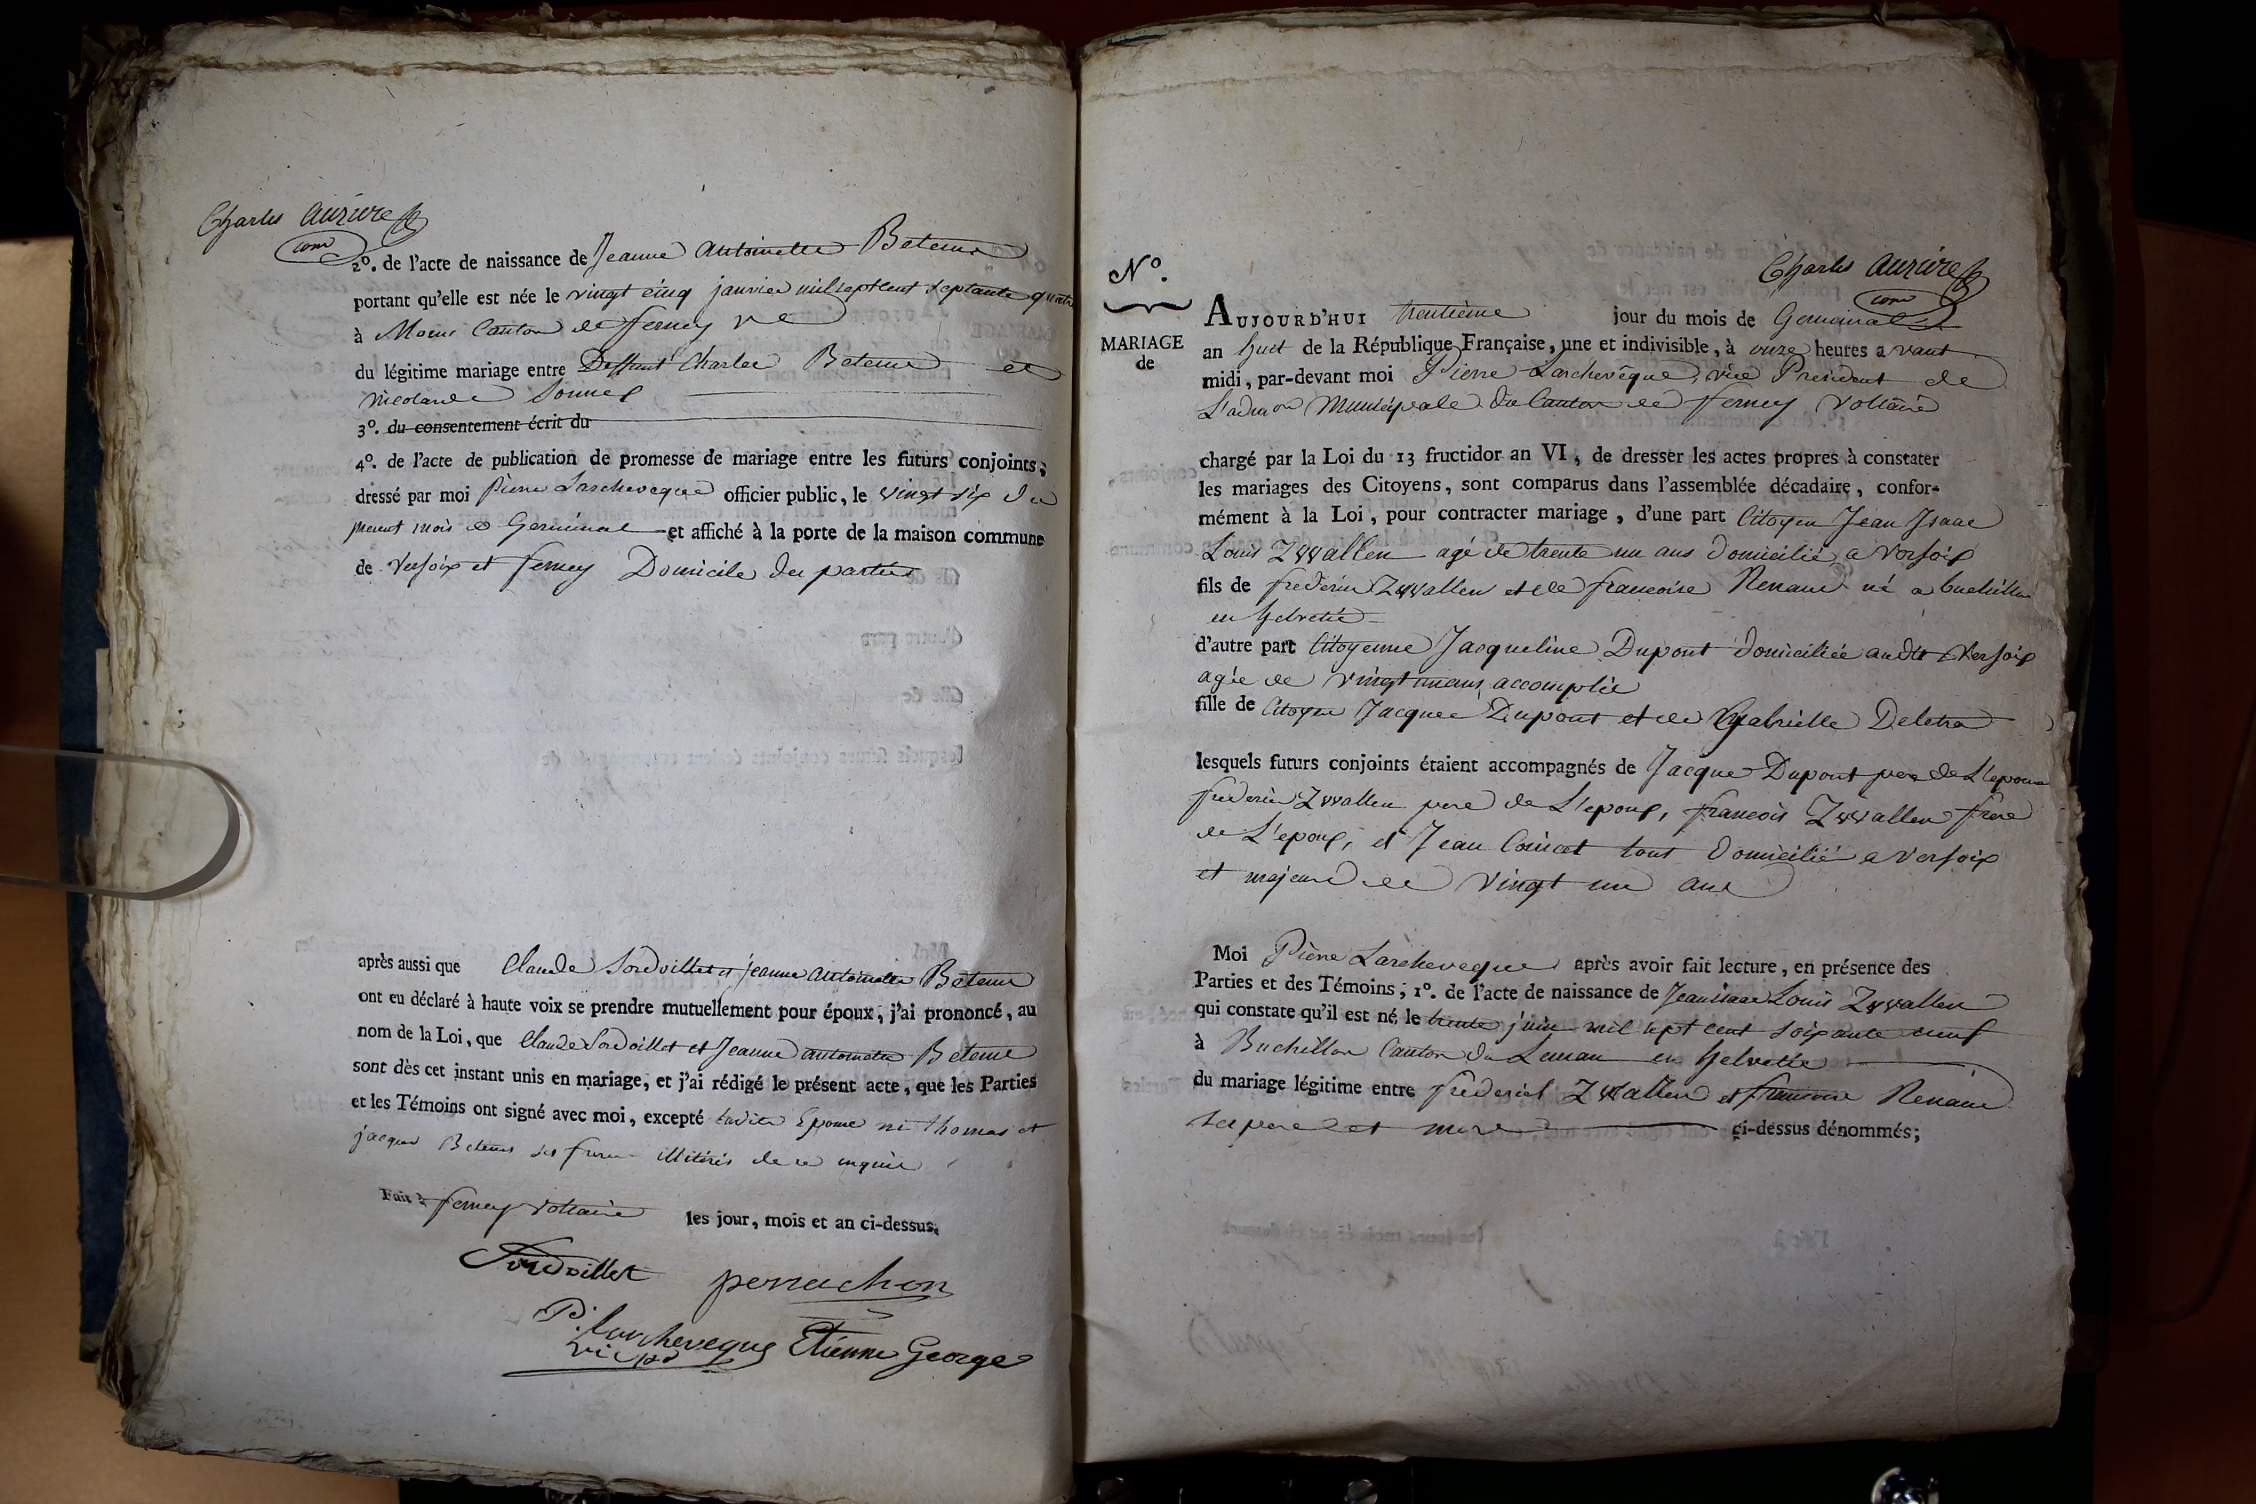 Charles auzière
com
2º. de l'acte de naissance de Jeanne antoinette Beteme
portant qu'elle est née le vingt cinq janvier mil sept cent septante quatre
à Moens Canton de ferney
du légitime mariage entre Deffunt Charles Beteme et
3º. du consentement écrit du
4º. de l'acte de publication de promesse de mariage entre les futurs conjoints;
dressé par moi Pierre Larcheveque officier public, le vingt six du
present mois de Germinal et affiché à la porte de la maison commune
de Versoix et ferney Domicile des parties
après aussi que Claude Sordoillet et jeanne antoinette Beteme
ont eu déclaré à haute voix se prendre mutuellement pour époux, j'ai prononcé, au
nom de la Loi, que Claude Sordoillet et Jeanne antoinette Beteme
sont dès cet instant unis en mariage, et j'ai rédigé le présent acte, que les Parties
et les Témoins ont signé avec moi, excepté ladite Epouse ni thomas et
jacques Beteme ses freres illitérés de ce enquis
Fait à ferney voltaire les jour, mois et an ci-dessus.
Sordoillet perrachon
P. Larcheveque Etienne George
Nº.
MARIAGE
de
Charles auzière
com
AUJOURD'HUI trentième jour du mois de Germinal
an huit de la République Française, une et indivisible, à onze heures avant
midi, par-devant moi Pierre Larchevêque, vice President de
L'admon Municipale du Canton de ferney voltaire
chargé par la Loi du 13 fructidor an VI, de dresser les actes propres à constater
les mariages des Citoyens, sont comparus dans l'assemblée décadaire, confor-
mément à la Loi, pour contracter mariage, d'une part Citoyen Jean Isaac
Louis Zwallen agé de trente un ans domicilié a Versoix
fils de frederic Zwallen et de francoise Renaud né a buchillon
en helvetie
d'autre part Citoyenne Jacqueline Dupont domiciliée audit Versoix
agée de vingt un ans accomplie
fille de Citoyen Jacques Dupont et de Gabrielle Deletra
lesquels futurs conjoints étaient accompagnés de Jacque Dupont pere de L'epouse
frederic Zwallen pere de L'epoux, francois Zwallen frere
de L'epoux, et Jean Coincet tout domicilié a Versoix
et majeurs de vingt un ans
Moi Pierre Larcheveque après avoir fait lecture, en présence des
Parties et des Témoins; 1º. de l'acte de naissance de Jean isaac Louis Zwallen
qui constate qu'il est né le trente juin mil sept cent soixante neuf
à Buchillon Canton du Leman en helvetie
du mariage légitime entre frederich Zwallen et francoise Renaud
ses pere et mere ci-dessus dénommés;